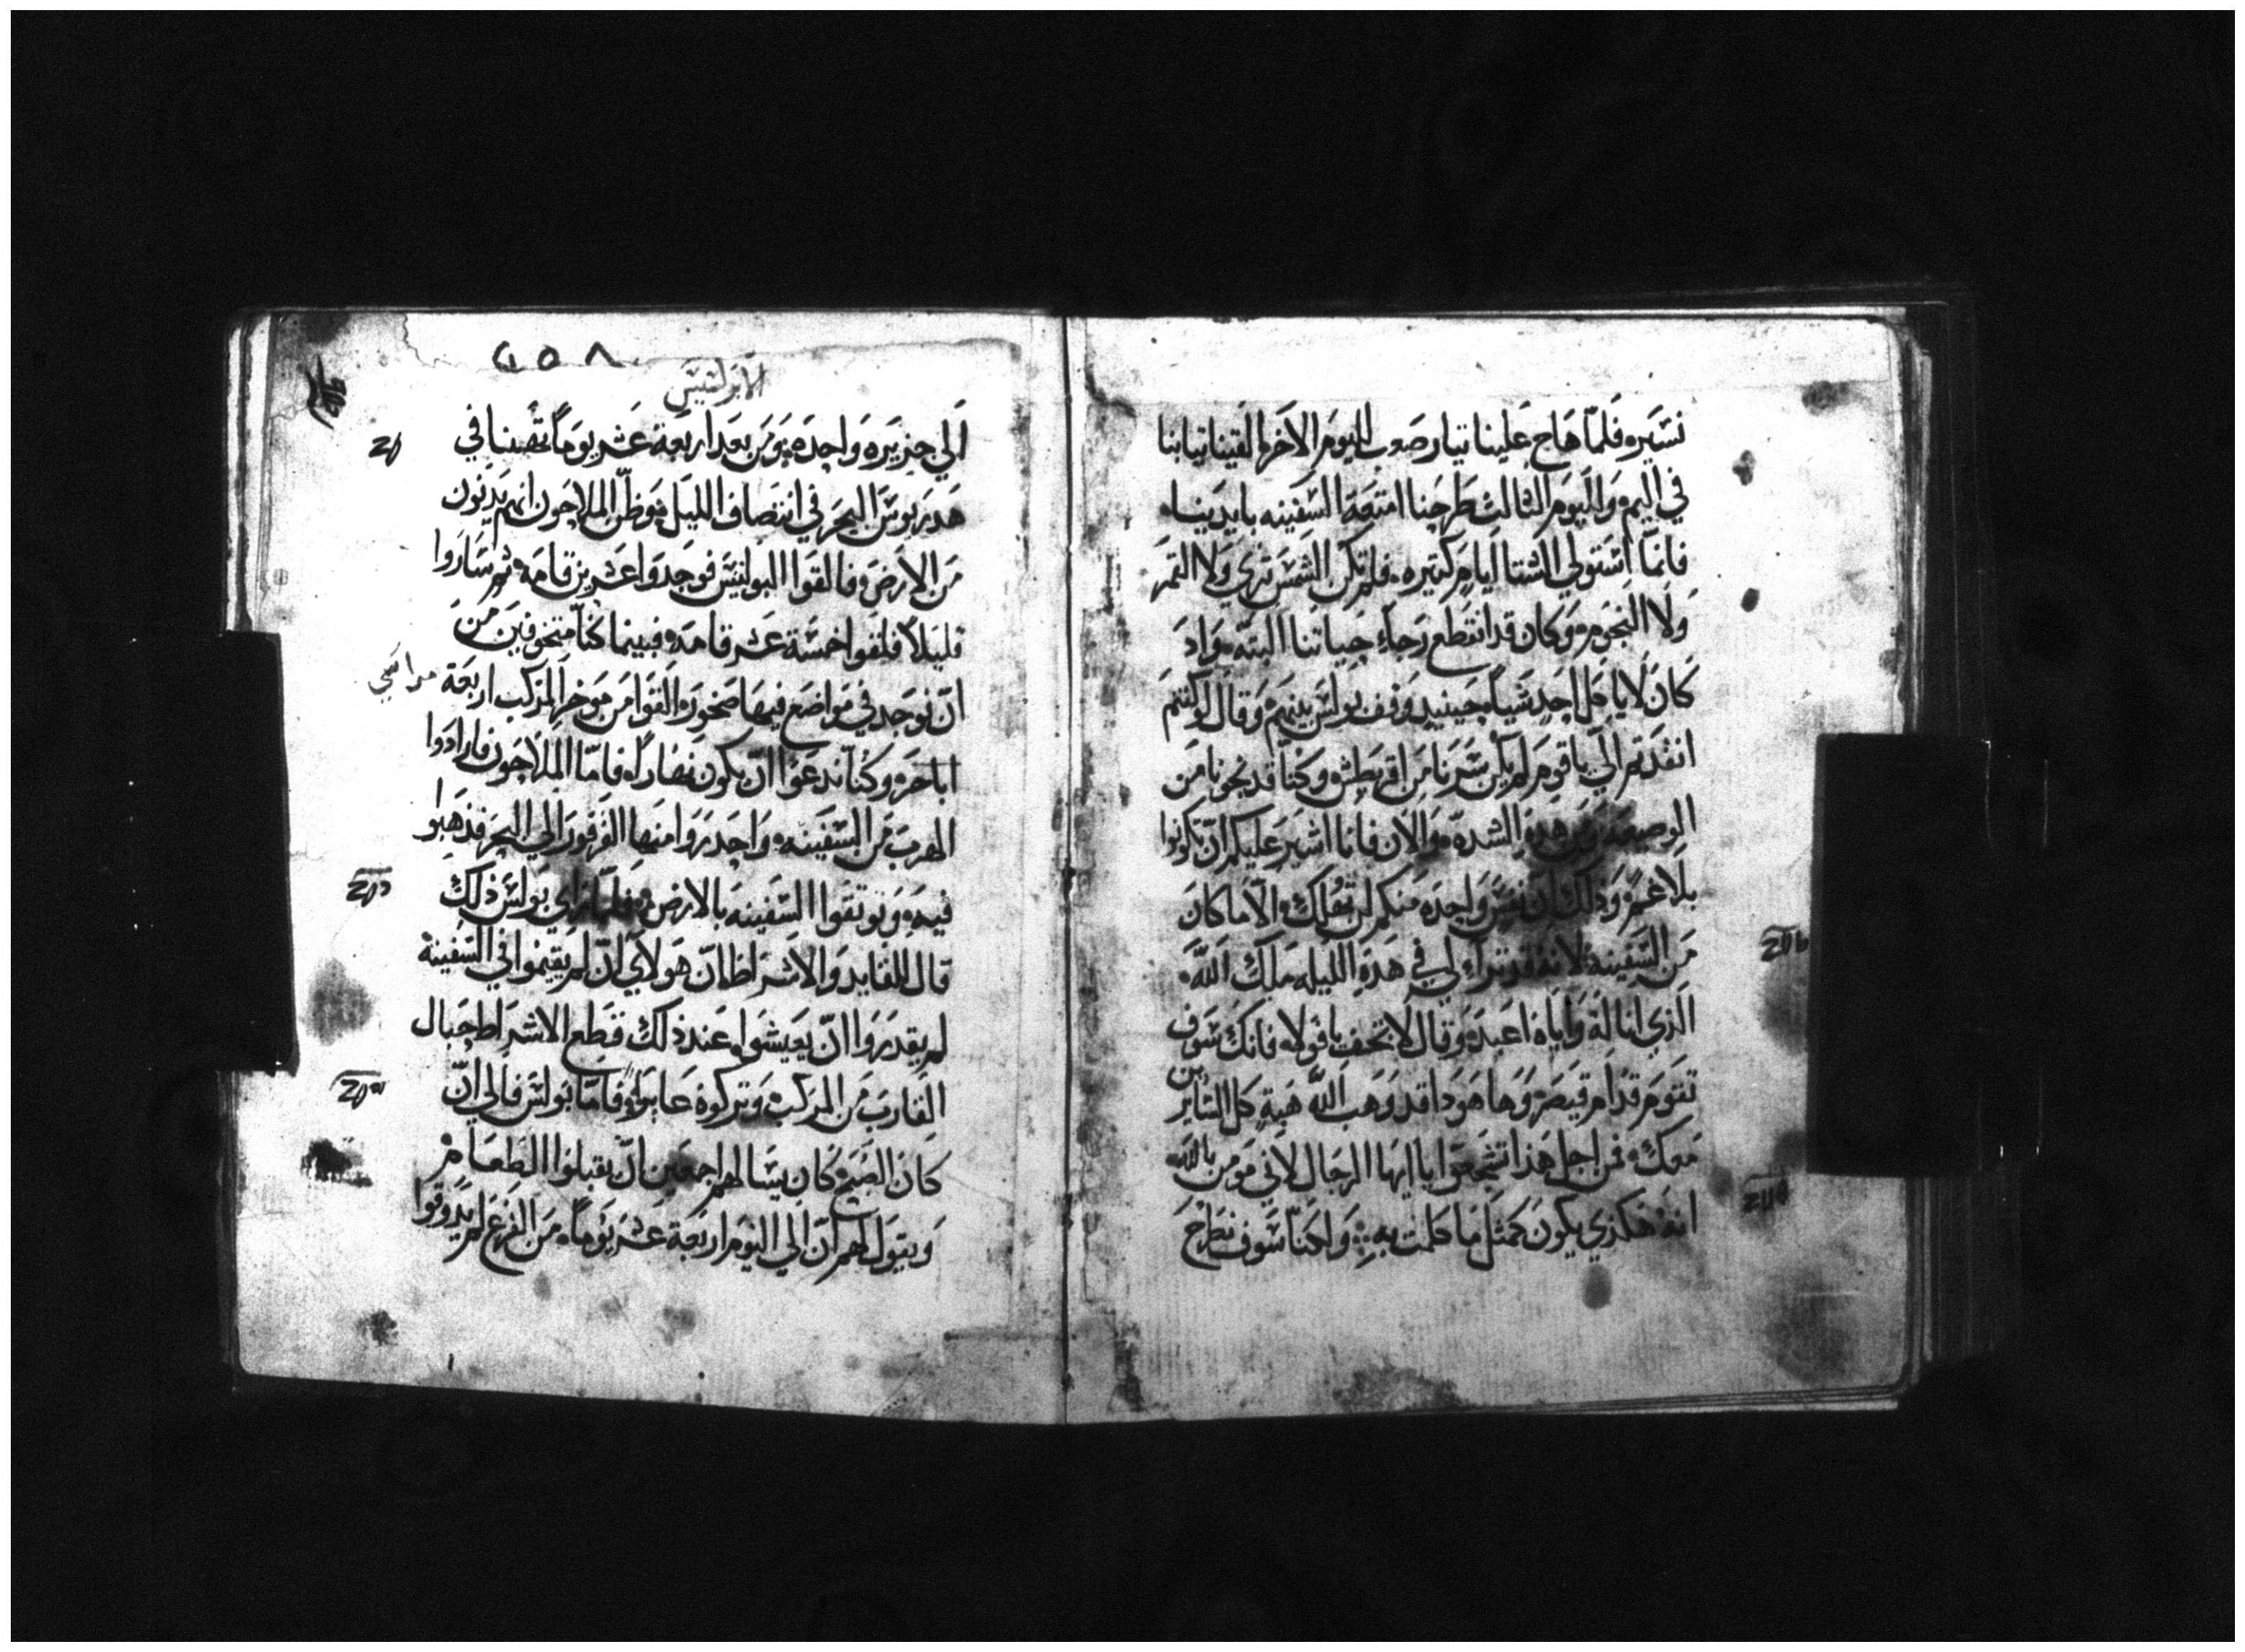 نسيره فلما هاج علينا تيار صعب لليوم الاخر القينا تيابنا
في اليم والليوم الثالث طرحنا امتعة السفينه بايدينا
فانما استولي الشتا اياما كتيره فلم تكن الشمس تري ولا القمر
ولا النجوم وكان قد انقطع رجاء حياتنا البته واد
كان لا ياكل احد شيا حينيد وقف بولس بينهم وقال لو كنتم
انقدتم الي ياقوم لم يكن سرنا من اقريطش وكنا قد نجونا من
الوضيعه ومن هده الشده والان فانا اشير عليكم ان تكونوا
بلا غم ودلك ان نفس واحده منكم لن تهلك الا ما كان
من السفينه لانه قد ترااي لي في هده الليله ملك الله
الذي انا له واياه اعبد وقال لا تخف يا فوله فانك سوف
تقوم قدام قيصر وها هودا قد وهب الله هبة كل السايرين
معك فمن اجل هذا تشجعوا يا ايها الرجال لاني مومن بالله
انه هكذي يكون كمثل ما كلمت به ولكنا سوف نطرح
٢٥٨
الابركسيس
الي جزيره واحده ومن بعد اربعة عشر يوما تهنا في
هدريوس البحر في انتصاف الليل وظن الملاحون انهم يدنون
من الارض فالقوا البوليس فوجدوا عشرين قامه ثم ساروا
قليلا فلقوا خمسة عشر قامه فبينما كنا متخوفين من
ان نوجد في مواضع فيها صخوره القوا من موخر المركب اربعة مراسي
اباحره وكنا ندعوا ان يكون نهارا فاما الملاحون فارادوا
الهرب من السفينه واحدروا منها القرقور الي البحر فذهبوا
فيه ويوتقوا السفينه بالارض فلما راي بولس ذلك
قال للقايد والاشراط ان هولاي ان لم يقيموا في السفينة
لم يقدروا ان يعيشوا عند ذلك قطع الاشراط حبال
القارب من المركب وتركوه عايرا فاما بولس فالي ان
كان الصبح كان يسالهم اجمعين ان يقبلوا الطعام
ويقول لهم ان الي اليوم اربعة عشر يوما من الفزع لم يدوقوا